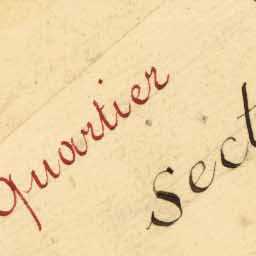 Quartier
Sect